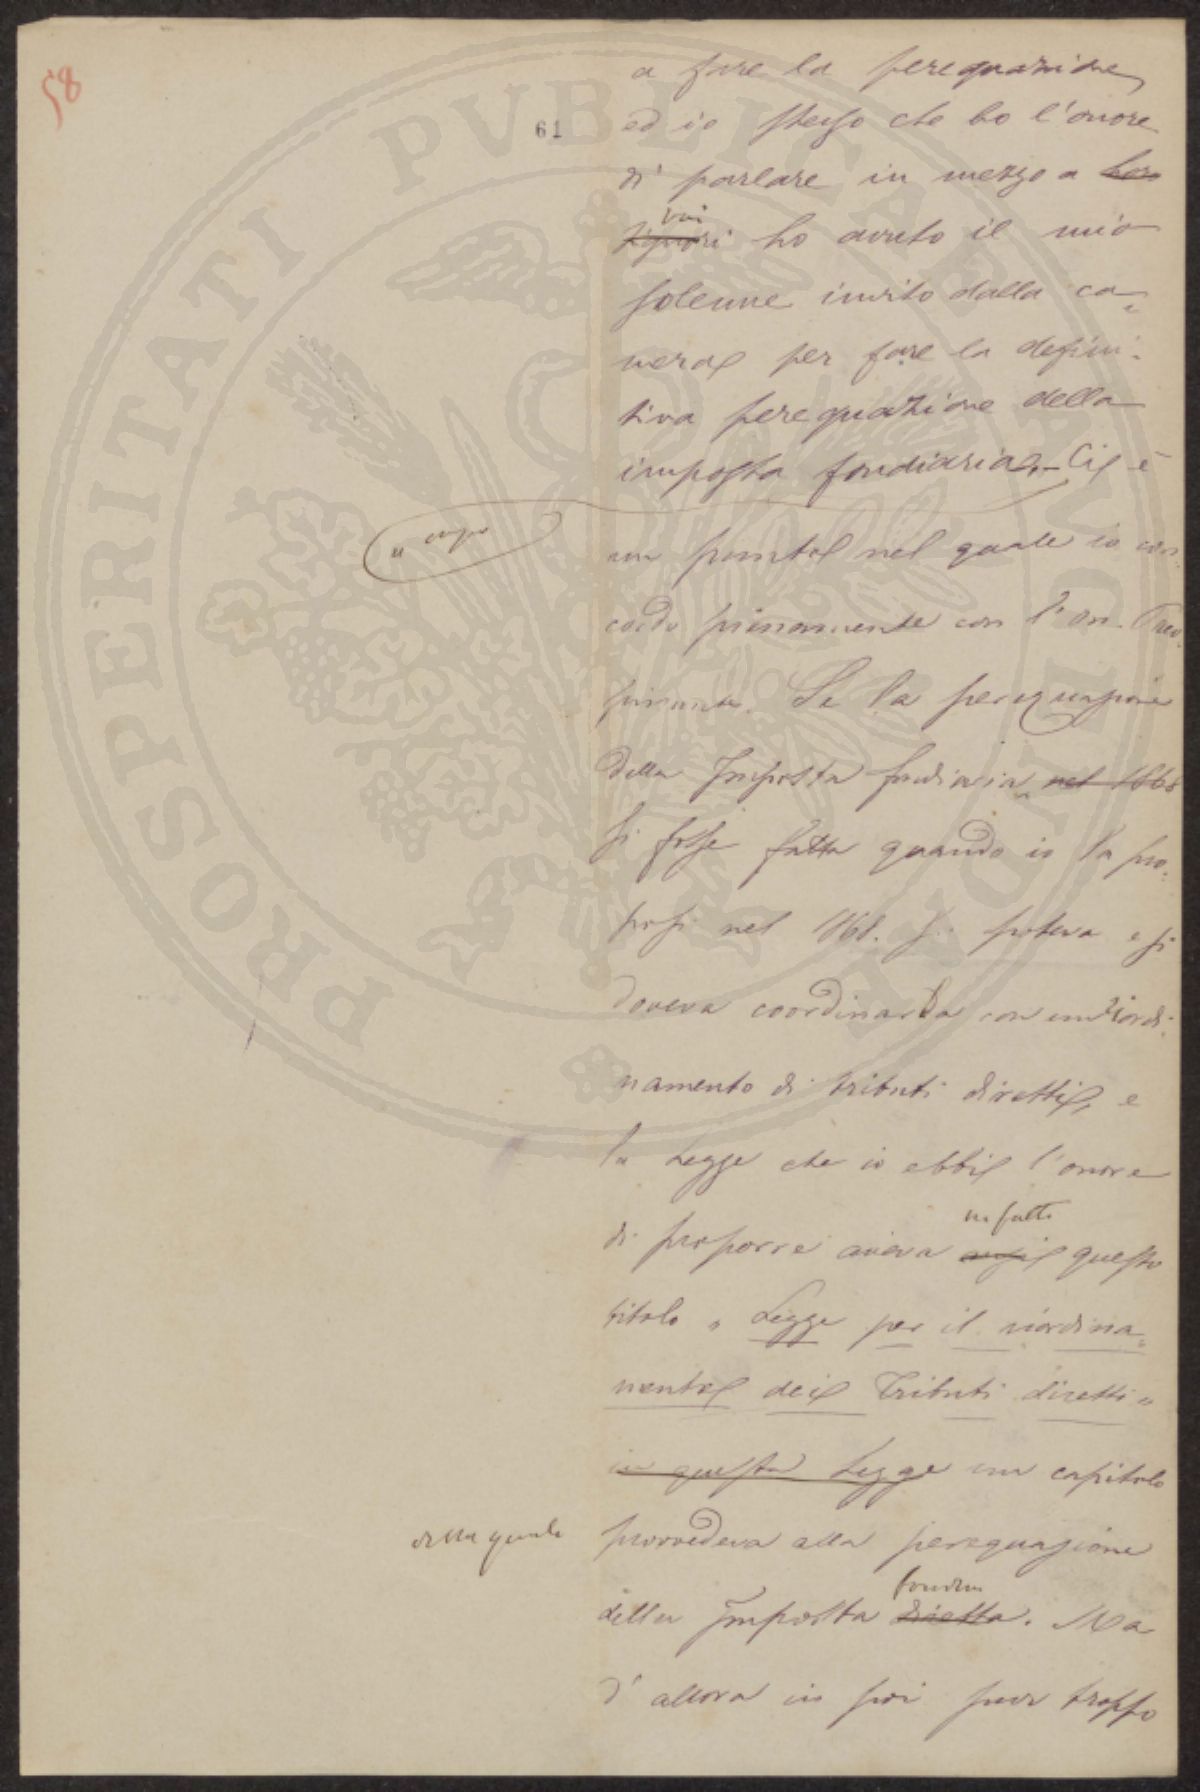 58
61
a fare la perequazione
ed io stesso che ho l'onore
di parlare in mezzo a loro
voi
signori ho avuto il mio
solenne invito dalla ca=
mera per fare la defini-
tiva perequazione della
imposta fondiaria. Ciò è
a capo
un punto nel quale io con
cordo pienamente con l'on.
Se la perequazione
della Imposta fondiaria nel 1868
si fosse fatta quando io la pro-
posi nel 1861. Si poteva e si
doveva coordinarla con un riordi-
namento di tributi diretti, e
la Legge che io ebbi l'onore
infatti
di proporre aveva anzi questo
titolo " Legge per il riordina=
mento dei Tributi diretti "
in questa Legge un capitolo
della quale
provvedeva alla perequazione
fondiaria
della Imposta diretta. Ma
d'allora in poi pur troppo
PROSPERITATI PVBLICAE AVGENDAE